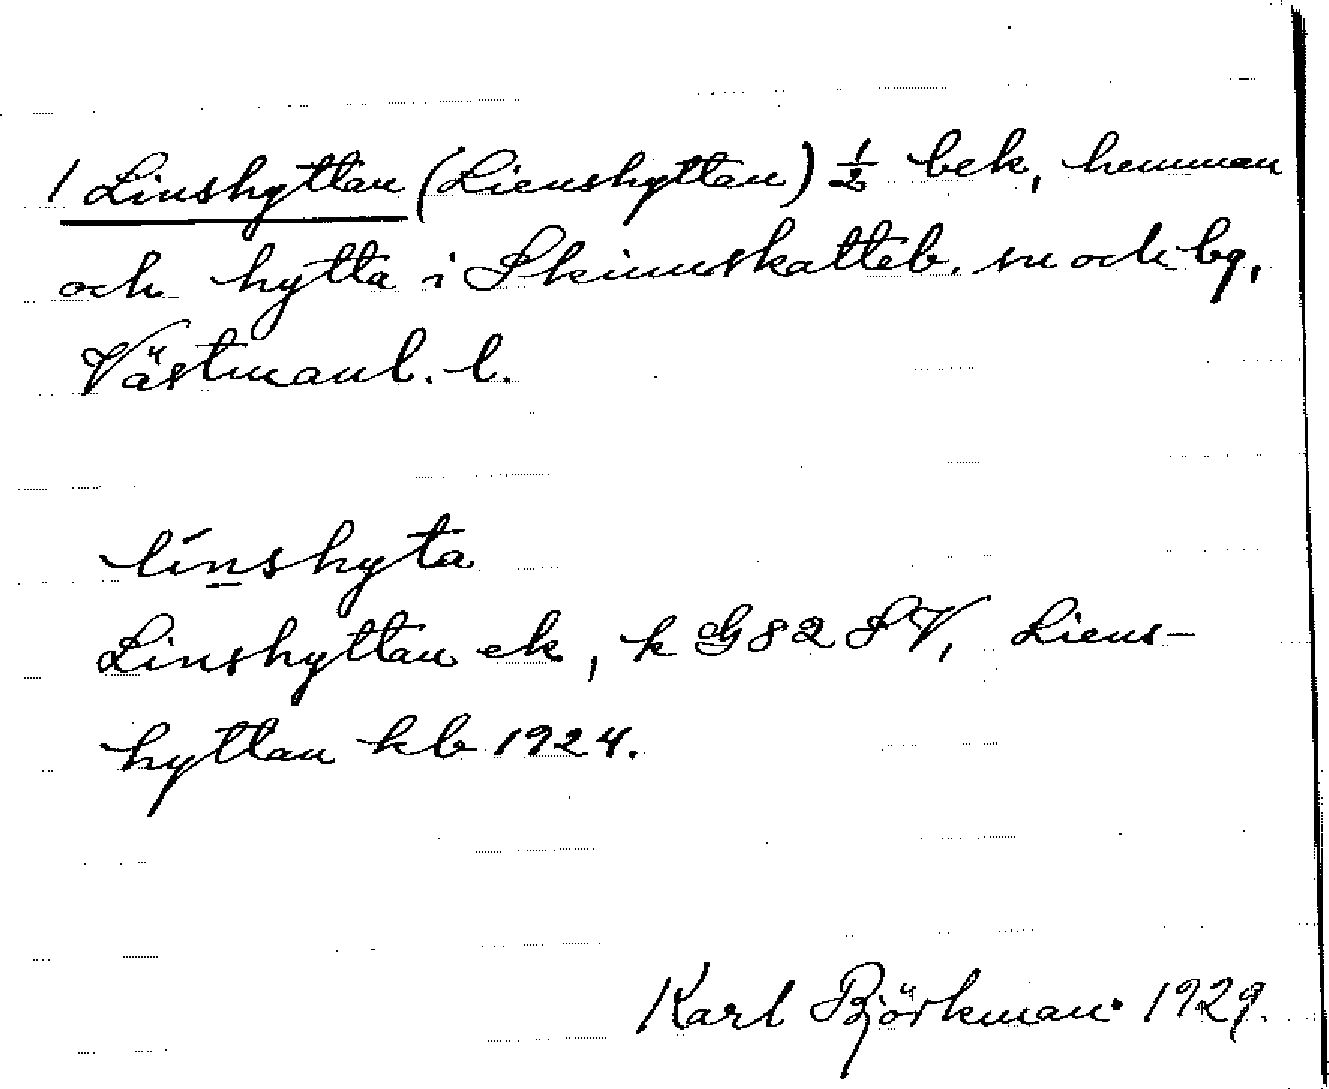 1 Linshyttan (Lienshyttan) ½ bek, hemman
och hytta i Skinnskatteb. sn och bg,
Västmanl. l.
línshyta
Linshyttan ek, k G82SV, Liens-
hyttan kb 1924.
Karl Björkman. 1929.